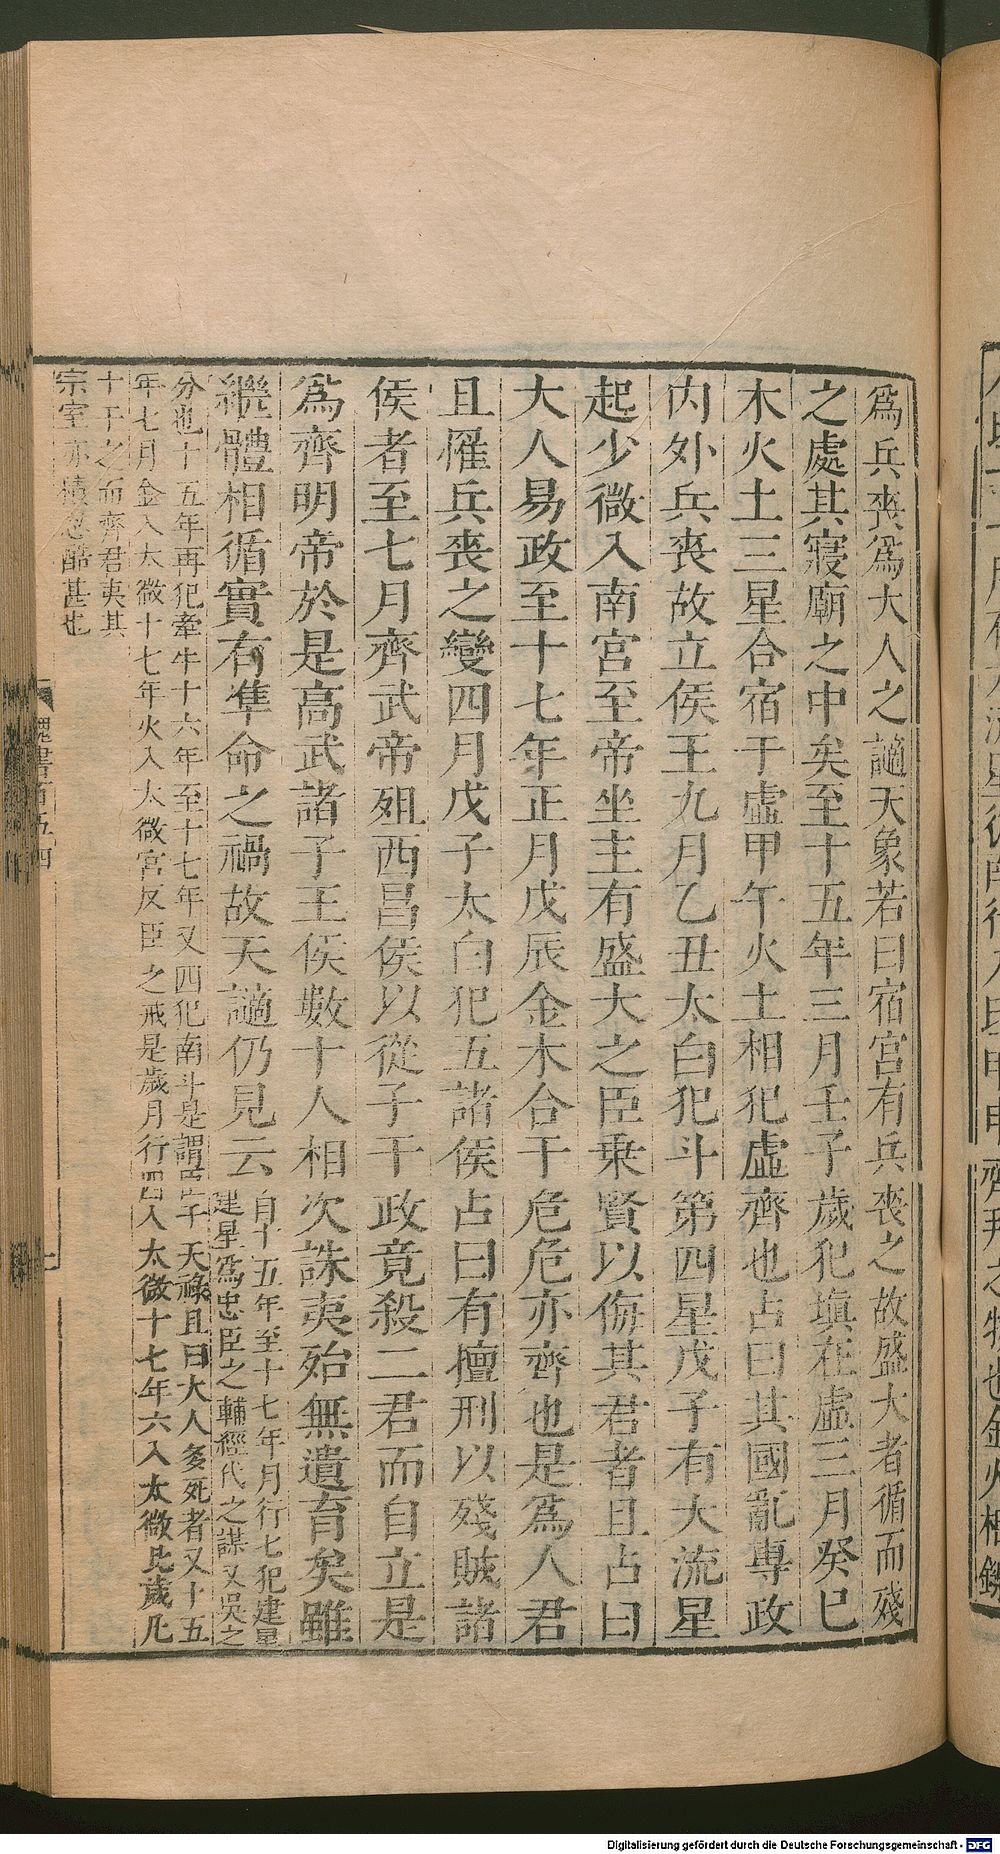 爲兵喪爲大人之謫天象若曰宿宮有兵喪之故盛大者循而殘
之處其寢廟之中矣至十五年三月壬子歲犯填在虛三月癸巳
木火土三星合宿于虛甲午火土相犯虛齊也占曰其國亂專政
内外兵喪故立侯王九月乙丑太白犯斗第四星戊子有大流星
起少微入南宮至帝坐主有盛大之臣乘賢以侮其君者且占曰
大人易政至十七年正月戊辰金木合于危危亦齊也是爲人君
且罹兵喪之變四月戊子太白犯五諸侯占曰有擅刑以殘賊諸
侯者至七月齊武帝殂西昌侯以從子干政竟殺二君而自立是
爲齊明帝於是高武諸子王侯數十人相次誅夷殆無遺育矣雖
繼體相循實有準命之禍故天謫仍見云
自十五年至十七年月行七犯建星
建星爲忠臣之輔經代之謀又吳之
分也十五年再犯牽牛十六年至十七年又四犯南斗是謂臣子天祿且曰大人多死者又十五
年七月金入太微十七年火入太微宮反臣之戒是歲月行四入太微十七年六入太微比歲凡
十干之而齊君夷其
宗室亦積忍酷甚也
魏書百五四
十
Digitalisierung gefördert durch die Deutsche Forschungsgemeinschaft - DFG